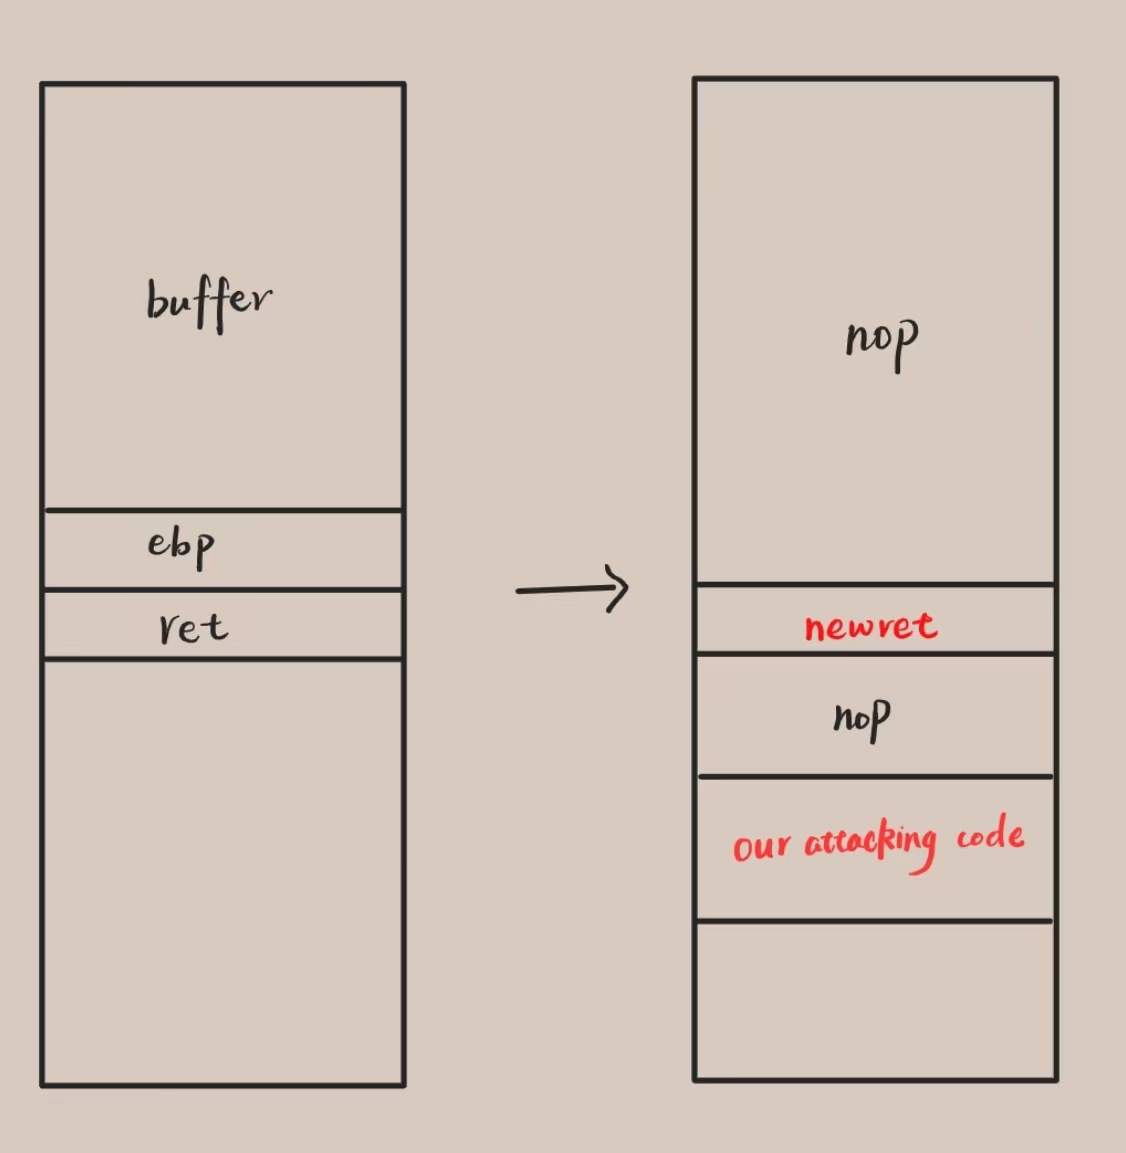 buffer
ebp
ret
nop
newret
nop
our attacking code